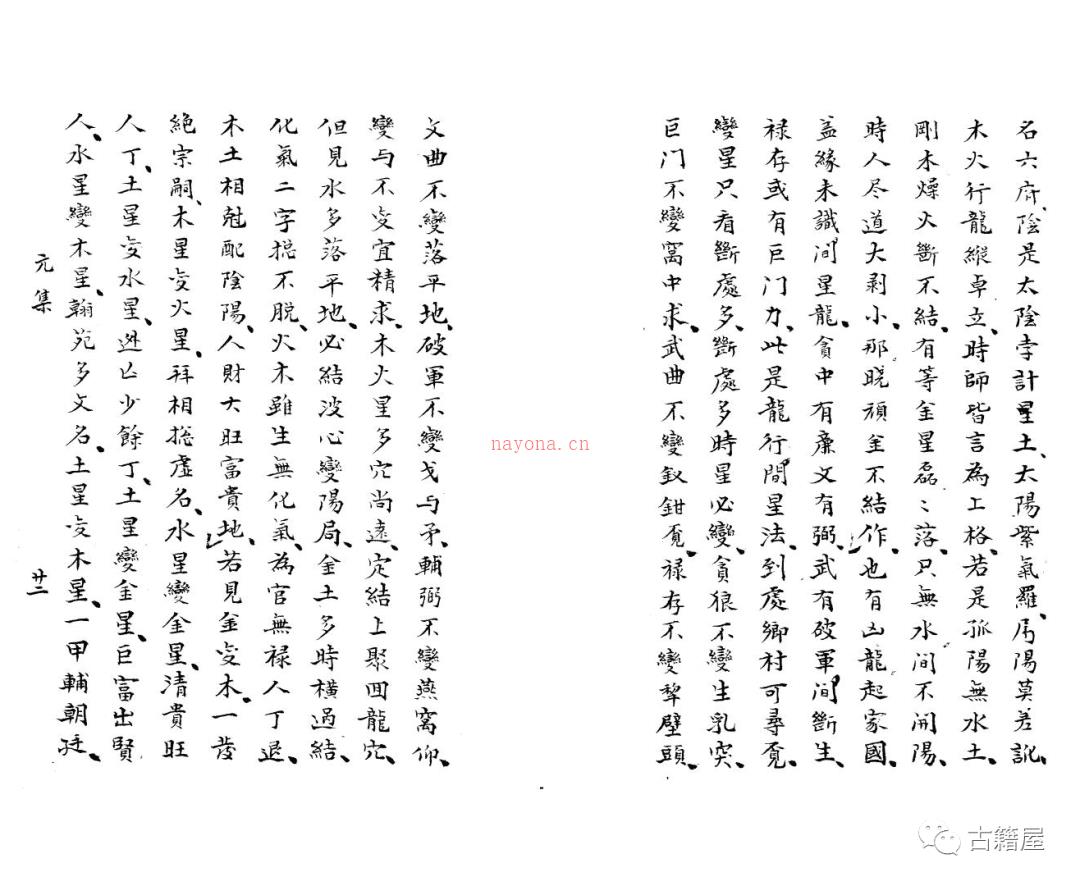 名六府、陰是太陰孛計星土、太陽紫氣羅、屬陽莫差訛、
木火行龍縱卓立、時師皆言為上格、若是孤陽無水土、
剛木燥火斷不結、有等金星磊〻落、只無水間不開陽、
時人尽道大剥小、那晓頑金不結作、也有凶龍起家國、
盖緣未識间星龍、貪中有廉文有弼、武有破軍间斷生、
禄存或有巨门力、此是龍行间星法、到處鄉村可尋覓、
變星只看斷處多、斷處多時星必變、貪狼不變生乳突、
巨门不變窩中求、武曲不變釵鉗覓、禄存不變犂壁頭、
文曲不變落平地、破軍不變戈与矛、輔弼不變燕窩仰、
變与不变宜精求、木火星多穴尚遠、定結上聚回龍穴、
但見水多落平地、必結波心變陽局、金土多時横過結、
化氣二字捴不脱、火木雖生無化氣、為官無禄人丁退、
木土相尅配陰陽、人財大旺富貴地、若見金变木、一發
絶宗嗣、木星变火星、拜相捴虚名、水星變金星、清貴旺
人丁、土星变水星、逃亡少餘丁、土星變金星、巨富出賢
人、水星變木星、翰苑多文名、土星变木星、一甲輔朝廷、
元集
廿二
nayona.cn
古籍屋